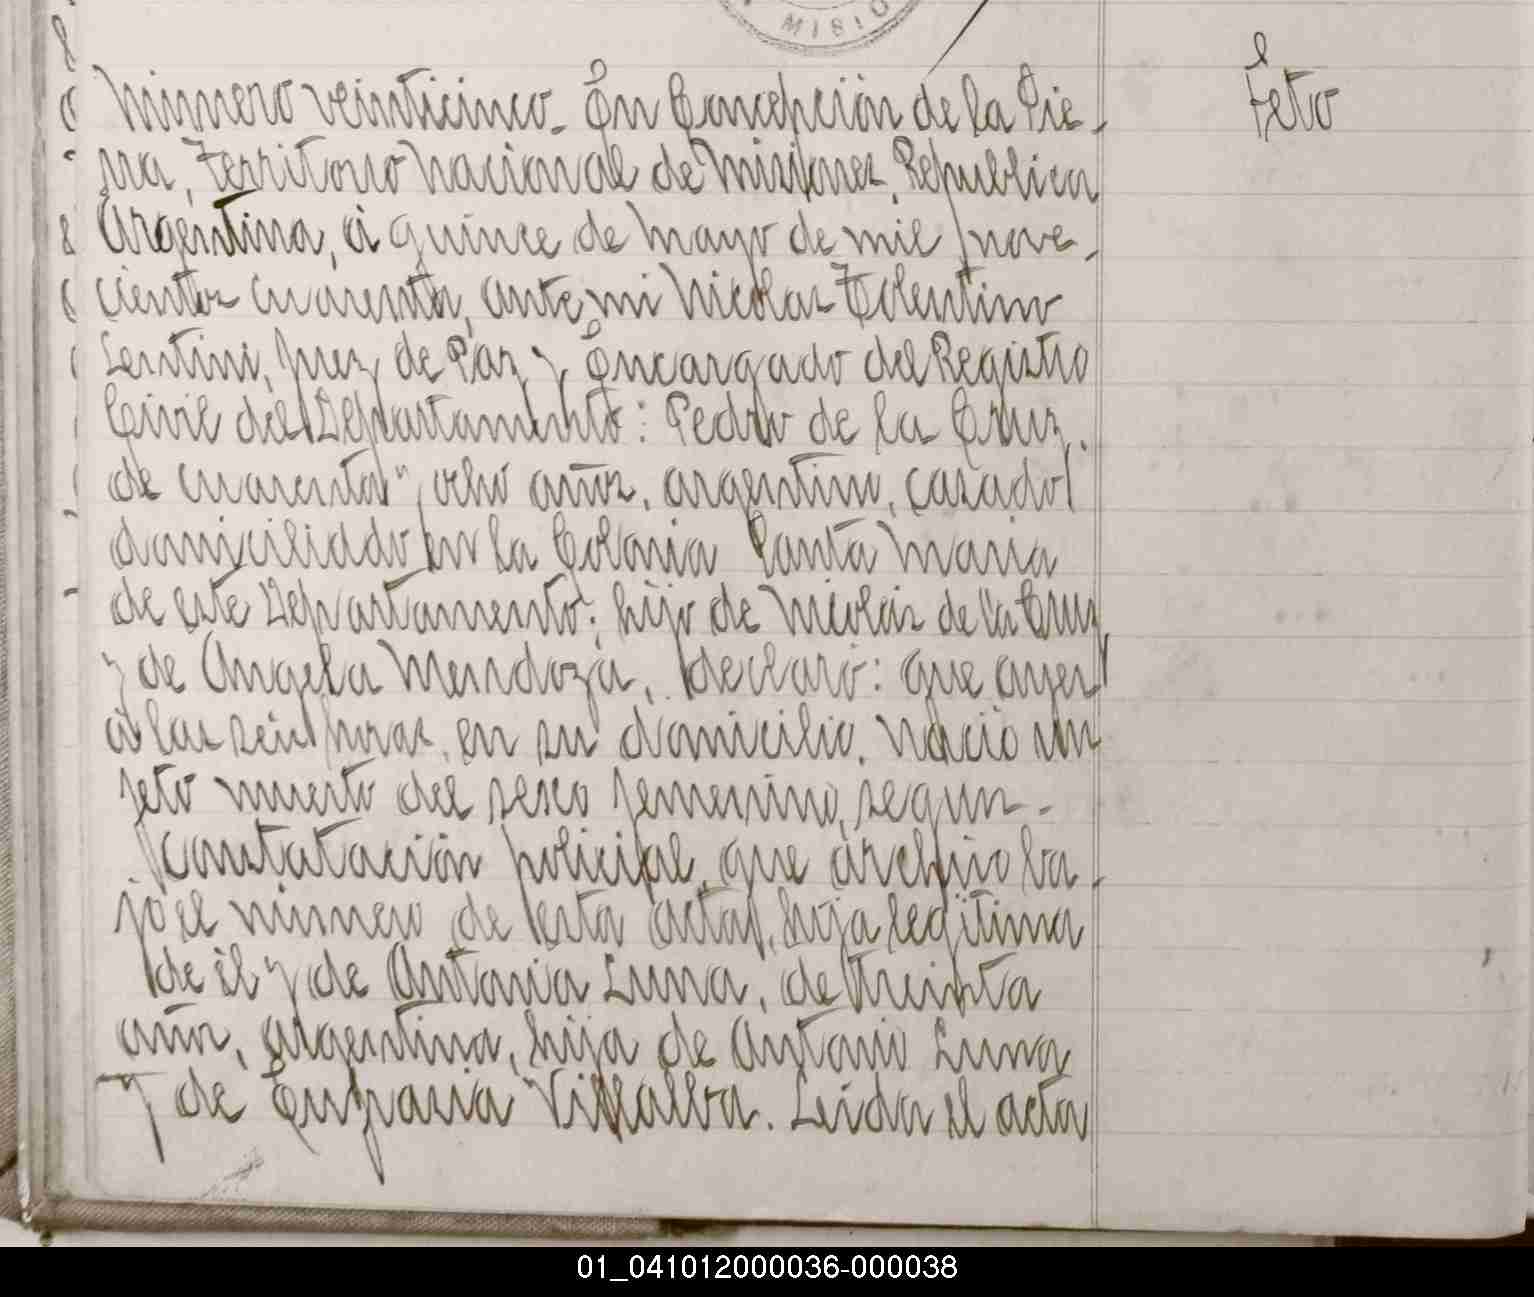 MISIO
Número veinticinco. En Concepción de la Sie-
rra, Territorio Nacional de Misiones, República
Argentina, á quince de Mayo de mil nove-
cientos cuarenta, ante mi Nicolas Tolentino
Lentini, Juez de Paz y Encargado del Registro
Civil del Departamento: Pedro de la Cruz,
de cuarenta y ocho años, argentino, casado,
domiciliado en la Colonia Santa Maria
de este Departamento; hijo de Nicolás de la Cruz
y de Angela Mendoza, declaró: que ayer
á las seis horas, en su domicilio, nació un
feto muerto del sexo femenino, segun-
constatación policial, que archivo ba-
jo el número de esta acta, hija legítima
de él y de Antonia Luna, de treinta
años, argentina, hija de Antonio Luna
y de Eufrasia Villalba. Leida el acta
Feto
01_041012000036-000038